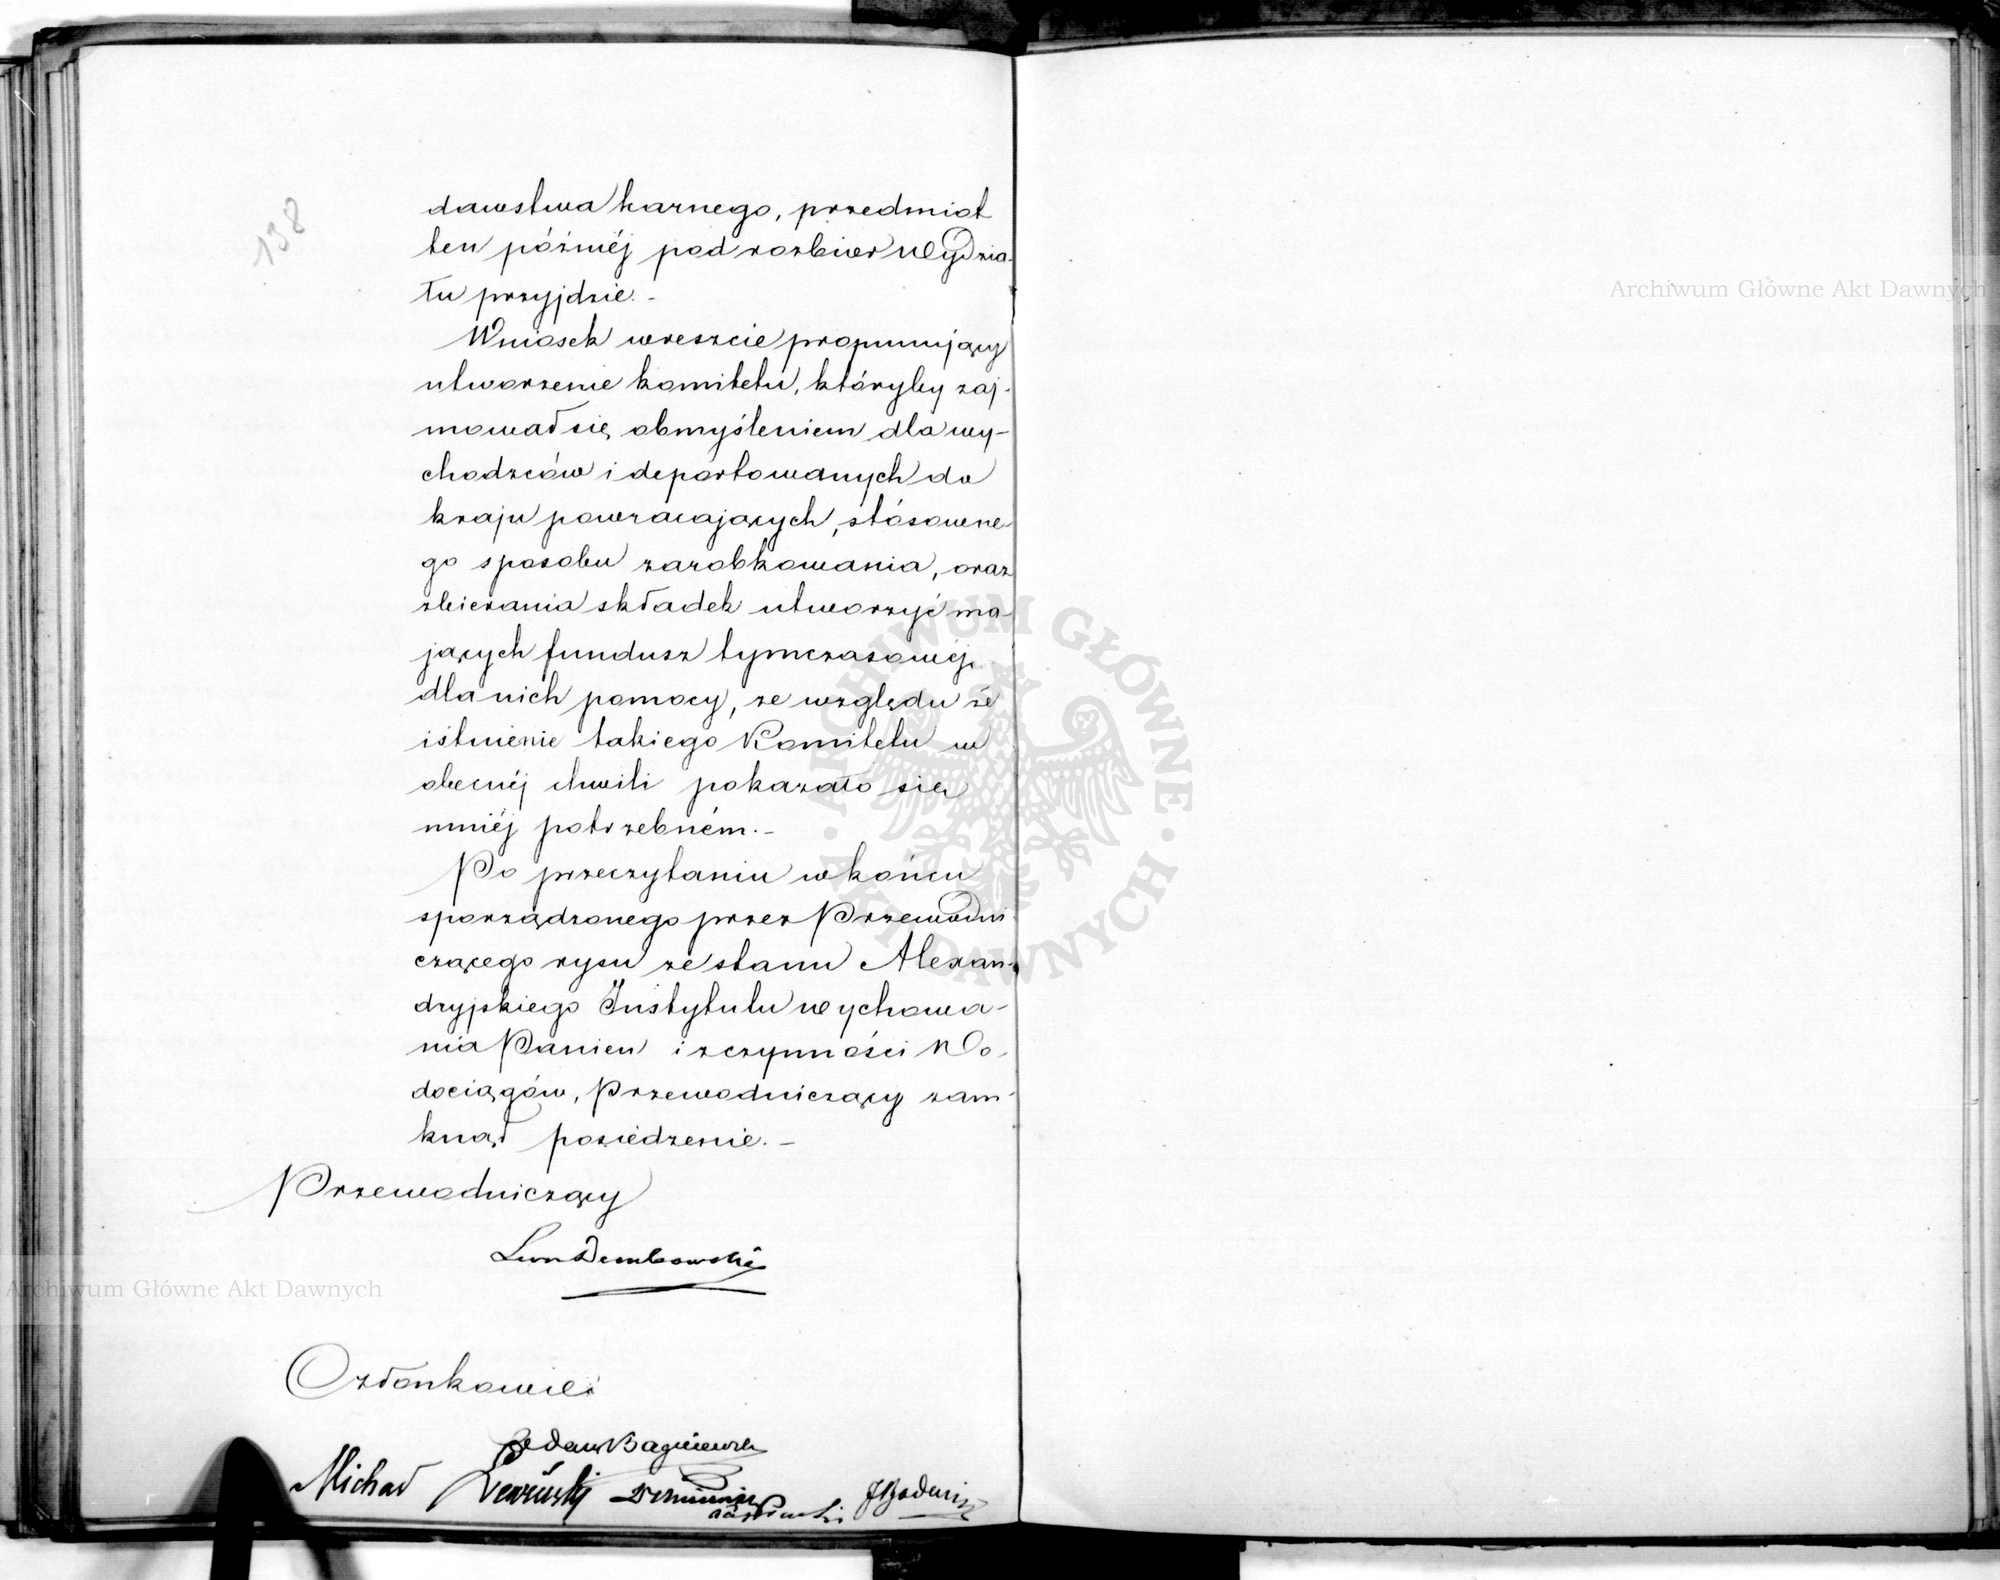 138
dawstwa karnego, przedmiot
ten późniéj pod rozbiór Wydzia-
łu przyjdzie.-
Wniosek wreszcie proponujący
utworzenie komitetu, któryby zaj-
mował się obmyśleniem dla wy-
chodzców i deportowanych do
kraju powracających, stósowne-
go sposobu zarobkowania, oraz
zbierania składek utworzyć ma-
jących fundusz tymczasowéj
dla nich pomocy, ze względu że
istnienie takiego Komitetu w
obecnéj chwili pokazało się
mniéj potrzebném.-
Po przeczytaniu w końcu
sporządzonego przez Przewodni-
czącego rysu ze stanu Alexan-
dryjskiego Instytutu wychowa-
nia Panien i z czynności Wo-
dociągów, Przewodniczący zam-
knął posiedzenie.-
Przewodniczący
Leon Dembowski
Członkowie
Michał
Archiwum Główne Akt Dawnych
Archiwum Główne Akt Dawnych
ARCHIWUM GŁÓWNE AKT DAWNYCH